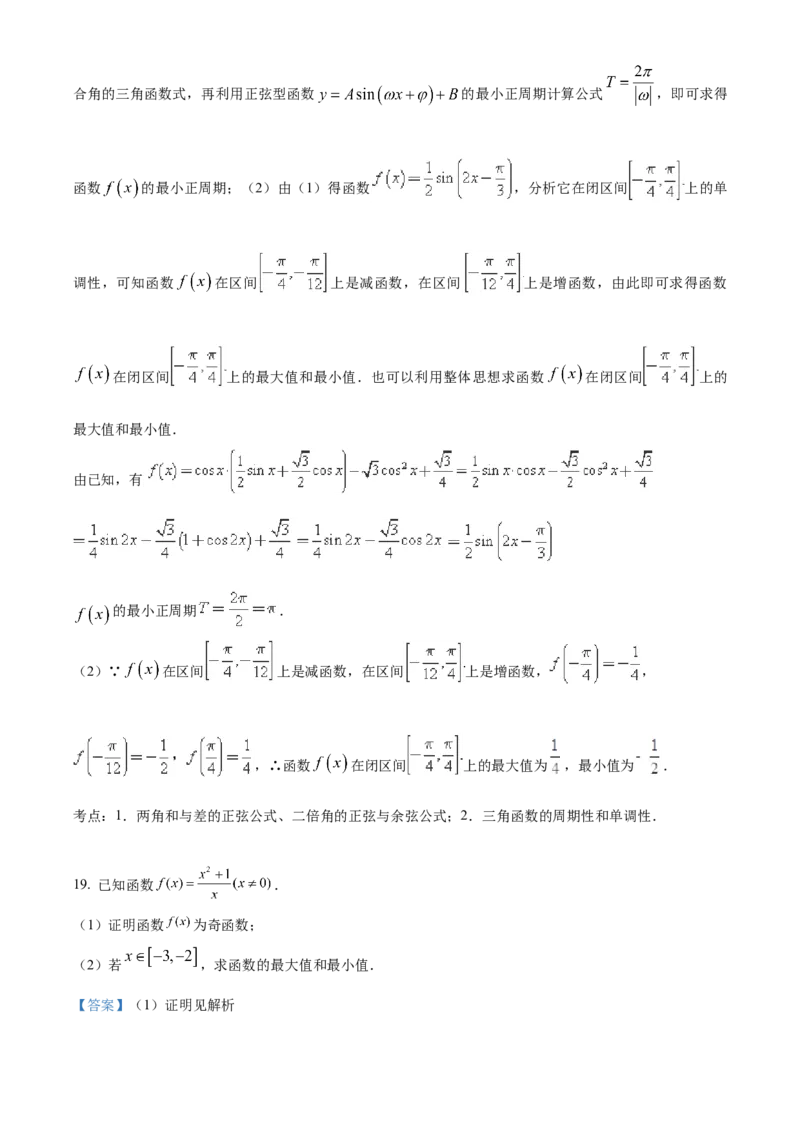 合角的三角函数式，再利用正弦型函数 y = Asin(ωx+φ)+B 的最小正周期计算公式 T = 2π/|ω|，即可求得
函数 f(x) 的最小正周期；（2）由（1）得函数 f(x) = 1/2 sin(2x − π/3)，分析它在闭区间 [−π/4, π/4] 上的单
调性，可知函数 f(x) 在区间 [−π/4, −π/12] 上是减函数，在区间 [−π/12, π/4] 上是增函数，由此即可求得函数
f(x) 在闭区间 [−π/4, π/4] 上的最大值和最小值．也可以利用整体思想求函数 f(x) 在闭区间 [−π/4, π/4] 上的
最大值和最小值．
由已知，有 f(x) = cos x·(1/2 sin x + √3/2 cos x) − √3cos² x + √3/4 = 1/2 sin x·cos x − √3/2 cos² x + √3/4
= 1/4 sin 2x − √3/4 (1+cos 2x) + √3/4 = 1/4 sin 2x − √3/4 cos 2x = 1/2 sin(2x − π/3)
f(x) 的最小正周期 T = 2π/2 = π．
（2）∵ f(x) 在区间 [−π/4, −π/12] 上是减函数，在区间 [−π/12, π/4] 上是增函数，f(−π/4) = −1/4，
f(−π/12) = −1/2，f(π/4) = 1/4，∴函数 f(x) 在闭区间 [−π/4, π/4] 上的最大值为 1/4，最小值为 -1/2．
考点：1．两角和与差的正弦公式、二倍角的正弦与余弦公式；2．三角函数的周期性和单调性．
19. 已知函数 f(x) = (x²+1)/x (x≠0)．
（1）证明函数 f(x) 为奇函数；
（2）若 x∈[−3,−2]，求函数的最大值和最小值．
【答案】（1）证明见解析